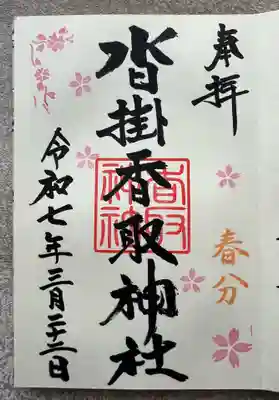 奉拝
春分
沓掛香取神社
令和七年三月二十二日
香取神社